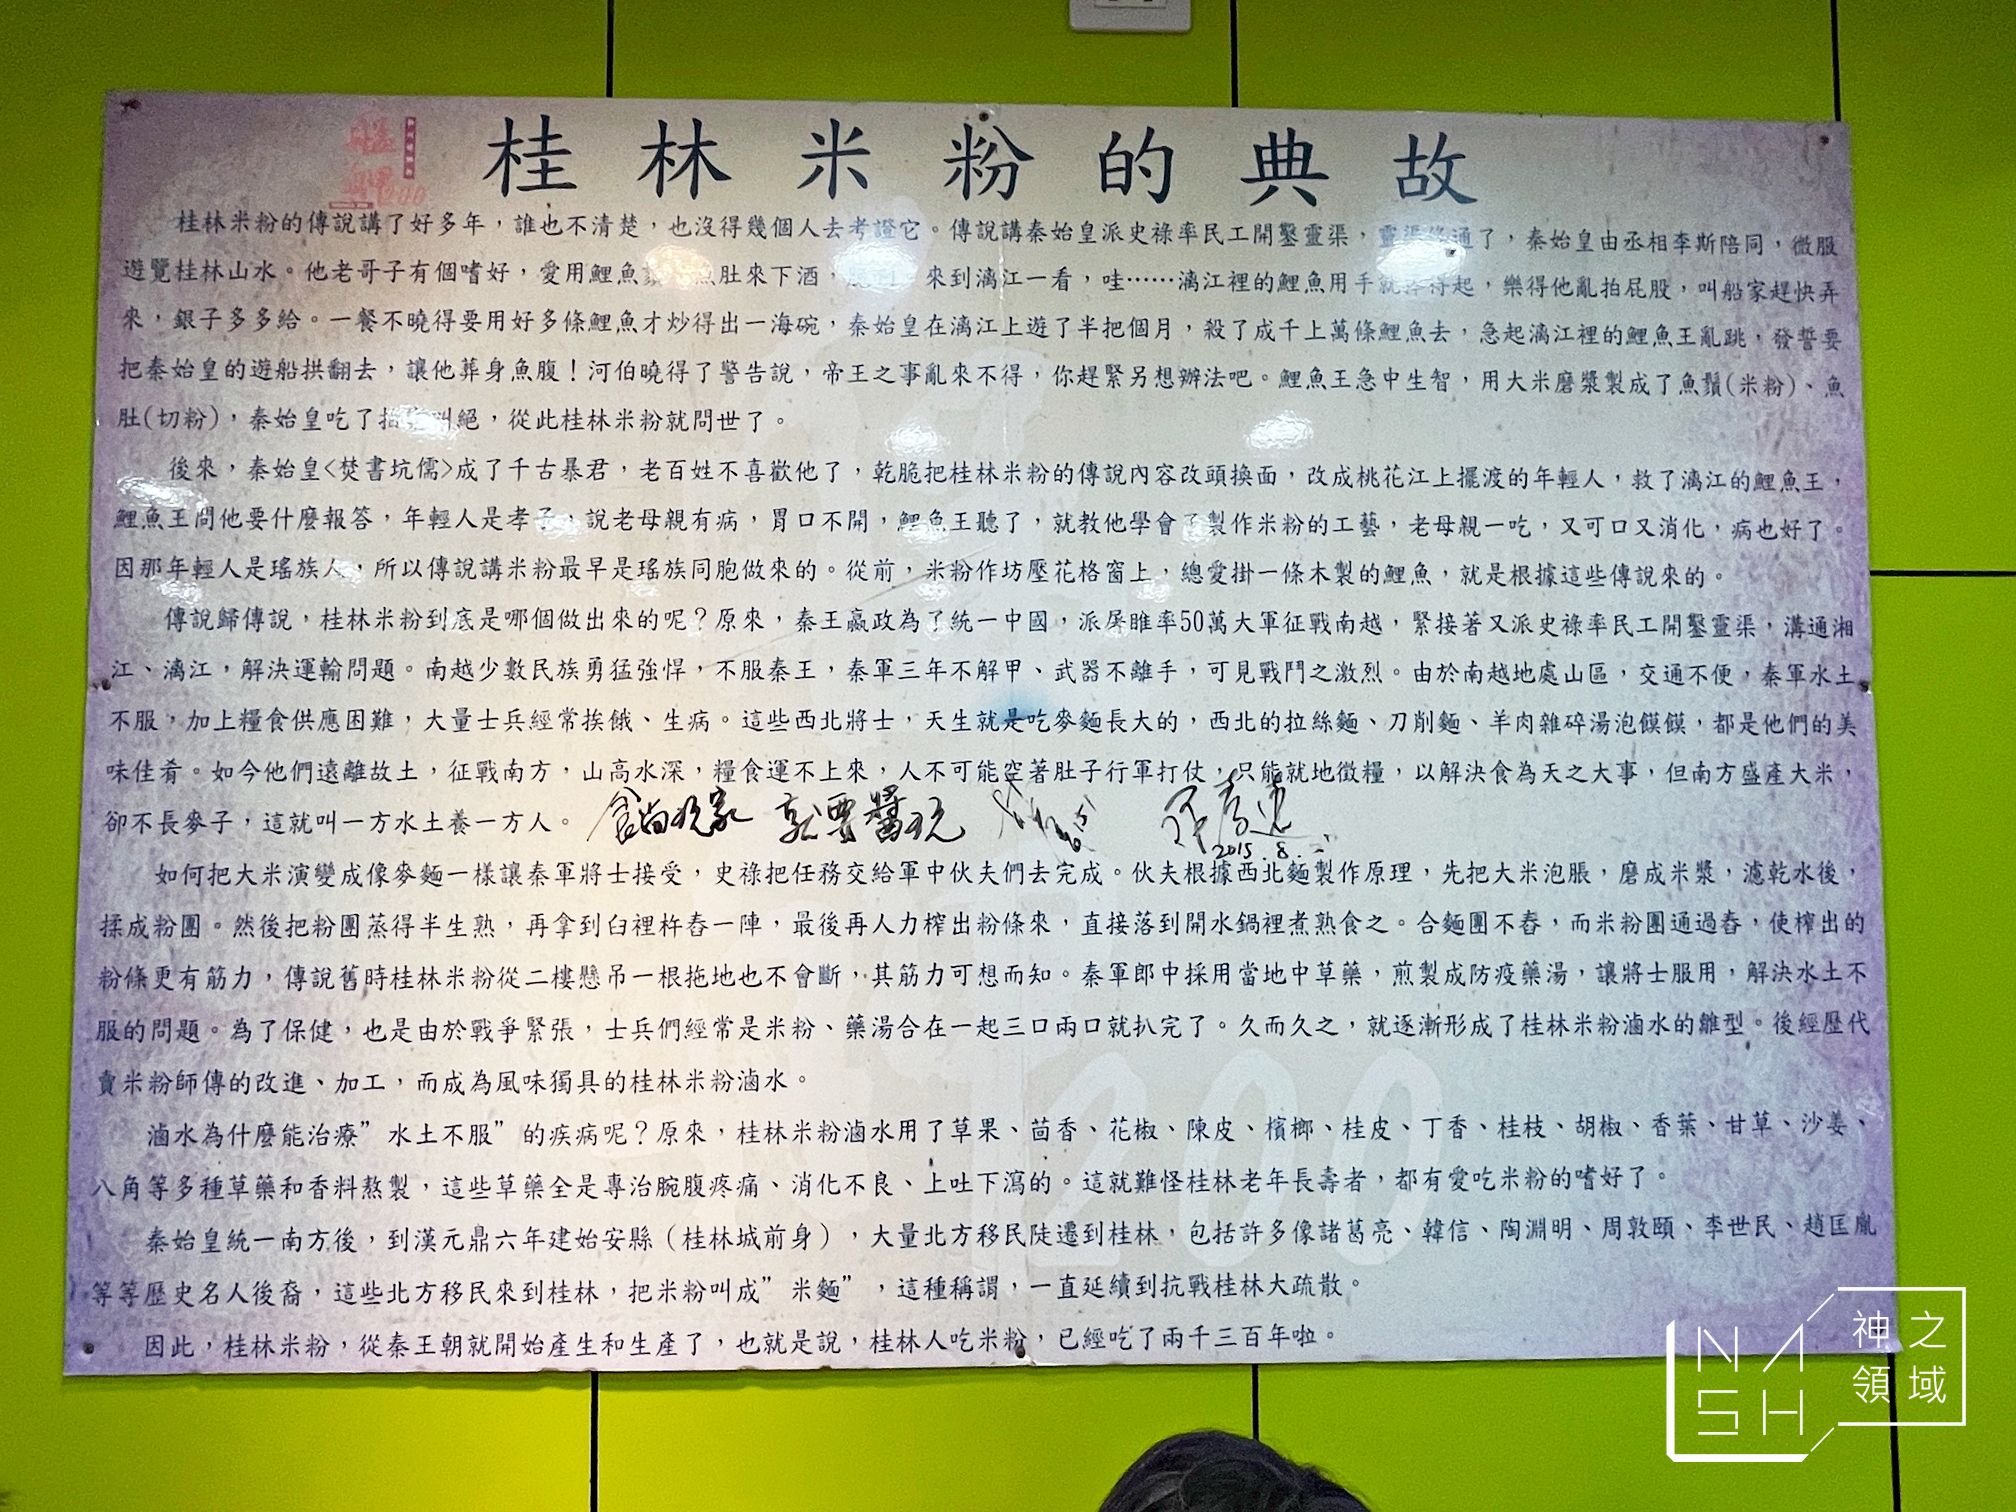 桂林米粉的典故
桂林米粉的傳說講了好多年，誰也不清楚，也沒得幾個人去考證它。傳說講秦始皇派史祿率民工開鑿靈渠，靈渠修通了，秦始皇由丞相李斯陪同，微服
遊覽桂林山水。他老哥子有個嗜好，愛用鯉魚鬚、魚肚來下酒，來到漓江一看，哇……漓江裡的鯉魚用手就得起，樂得他亂拍屁股，叫船家趕快弄
來，銀子多多給。一餐不曉得要用好多條鯉魚才炒得出一海碗，秦始皇在漓江上遊了半把個月，殺了成千上萬條鯉魚去，急起漓江裡的鯉魚王亂跳，發誓要
把秦始皇的遊船拱翻去，讓他葬身魚腹！河伯曉得了警告說，帝王之事亂來不得，你趕緊另想辦法吧。鯉魚王急中生智，用大米磨漿製成了魚鬚(米粉)、魚
肚(切粉)，秦始皇吃了拍案叫絕，從此桂林米粉就問世了。
後來，秦始皇<焚書坑儒>成了千古暴君，老百姓不喜歡他了，乾脆把桂林米粉的傳說內容改頭換面，改成桃花江上擺渡的年輕人，救了漓江的鯉魚王，
鯉魚王問他要什麼報答，年輕人是孝子，說老母親有病，胃口不開，鯉魚王聽了，就教他學會了製作米粉的工藝，老母親一吃，又可口又消化，病也好了。
因那年輕人是瑤族人，所以傳說講米粉最早是瑤族同胞做來的。從前，米粉作坊壓花格窗上，總愛掛一條木製的鯉魚，就是根據這些傳說來的。
傳說歸傳說，桂林米粉到底是哪個做出來的呢？原來，秦王嬴政為了統一中國，派屠睢率50萬大軍征戰南越，緊接著又派史祿率民工開鑿靈渠，溝通湘
江、漓江，解決運輸問題。南越少數民族勇猛強悍，不服秦王，秦軍三年不解甲、武器不離手，可見戰鬥之激烈。由於南越地處山區，交通不便，秦軍水土
不服，加上糧食供應困難，大量士兵經常挨餓、生病。這些西北將士，天生就是吃麥麵長大的，西北的拉絲麵、刀削麵、羊肉雜碎湯泡饃饃，都是他們的美
味佳肴。如今他們遠離故土，征戰南方，山高水深，糧食運不上來，人不可能空著肚子行軍打仗，只能就地徵糧，以解決食為天之大事，但南方盛產大米，
卻不長麥子，這就叫一方水土養一方人。
2015.8.
如何把大米演變成像麥麵一樣讓秦軍將士接受，史祿把任務交給軍中伙夫們去完成。伙夫根據西北麵製作原理，先把大米泡脹，磨成米漿，濾乾水後，
揉成粉團。然後把粉團蒸得半生熟，再拿到臼裡杵舂一陣，最後再人力榨出粉條來，直接落到開水鍋裡煮熟食之。合麵團不舂，而米粉團通過舂，使榨出的
粉條更有筋力，傳說舊時桂林米粉從二樓懸吊一根拖地也不會斷，其筋力可想而知。秦軍郎中採用當地中草藥，煎製成防疫藥湯，讓將士服用，解決水土不
服的問題。為了保健，也是由於戰爭緊張，士兵們經常是米粉、藥湯合在一起三口兩口就扒完了。久而久之，就逐漸形成了桂林米粉滷水的雛型。後經歷代
賣米粉師傅的改進、加工，而成為風味獨具的桂林米粉滷水。
滷水為什麼能治療”水土不服”的疾病呢？原來，桂林米粉滷水用了草果、茴香、花椒、陳皮、檳榔、桂皮、丁香、桂枝、胡椒、香葉、甘草、沙姜、
八角等多種草藥和香料熬製，這些草藥全是專治腕腹疼痛、消化不良、上吐下瀉的。這就難怪桂林老年長壽者，都有愛吃米粉的嗜好了。
秦始皇統一南方後，到漢元鼎六年建始安縣（桂林城前身），大量北方移民陡遷到桂林，包括許多像諸葛亮、韓信、陶淵明、周敦頤、李世民、趙匡胤
等等歷史名人後裔，這些北方移民來到桂林，把米粉叫成”米麵”，這種稱謂，一直延續到抗戰桂林大疏散。
因此，桂林米粉，從秦王朝就開始產生和生產了，也就是說，桂林人吃米粉，已經吃了兩千三百年啦。
1200
NASH
神之
領域